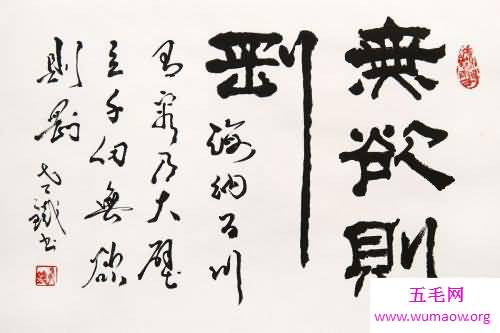 無欲則
剛
海納百川
有容乃大壁
立千仞無欲
則剛
鐵书
五毛网
www.wumaow.org